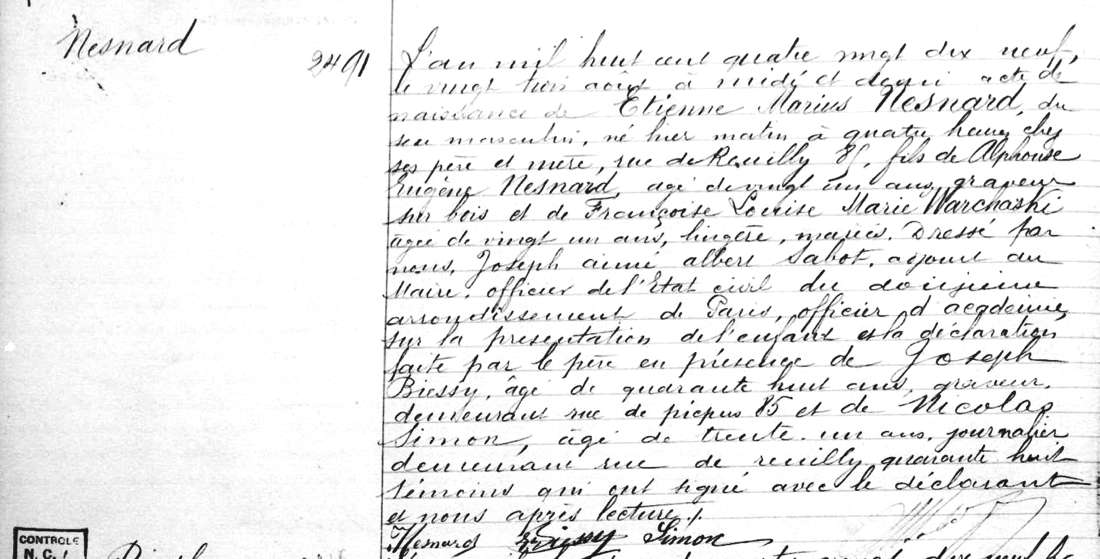 Nesnard
2491
L'an mil huit cent quatre vingt dix neuf,
le vingt trois août à midi et demi acte de
naissance de Etienne Marius Nesnard, du
sexe masculin, né hier matin à quatre heures chez
ses père et mère, rue de Reuilly 85, fils de Alphonse
Eugène Nesnard, agé de vingt un ans, graveur
sur bois et de Françoise Louise Marie Warchaski
âgée de vingt un ans, lingère, mariés. Dressé par
nous, Joseph aimé albert Sabot, adjoint au
Maire, officier de l'Etat civil du douzième
arrondissement de Paris, officier d'académie,
sur la présentation de l'enfant et la déclaration
faite par le père en présence de Joseph
Biessy, âgé de quarante huit ans, graveur,
demeurant rue de picpus 85 et de Nicolas
Simon, âgé de trente un ans, journalier
demeurant rue de reuilly quarante huit
témoins qui ont signé avec le déclarant
et nous après lecture./.
Nesnard Biessy Simon
CONTROLE
N. C.